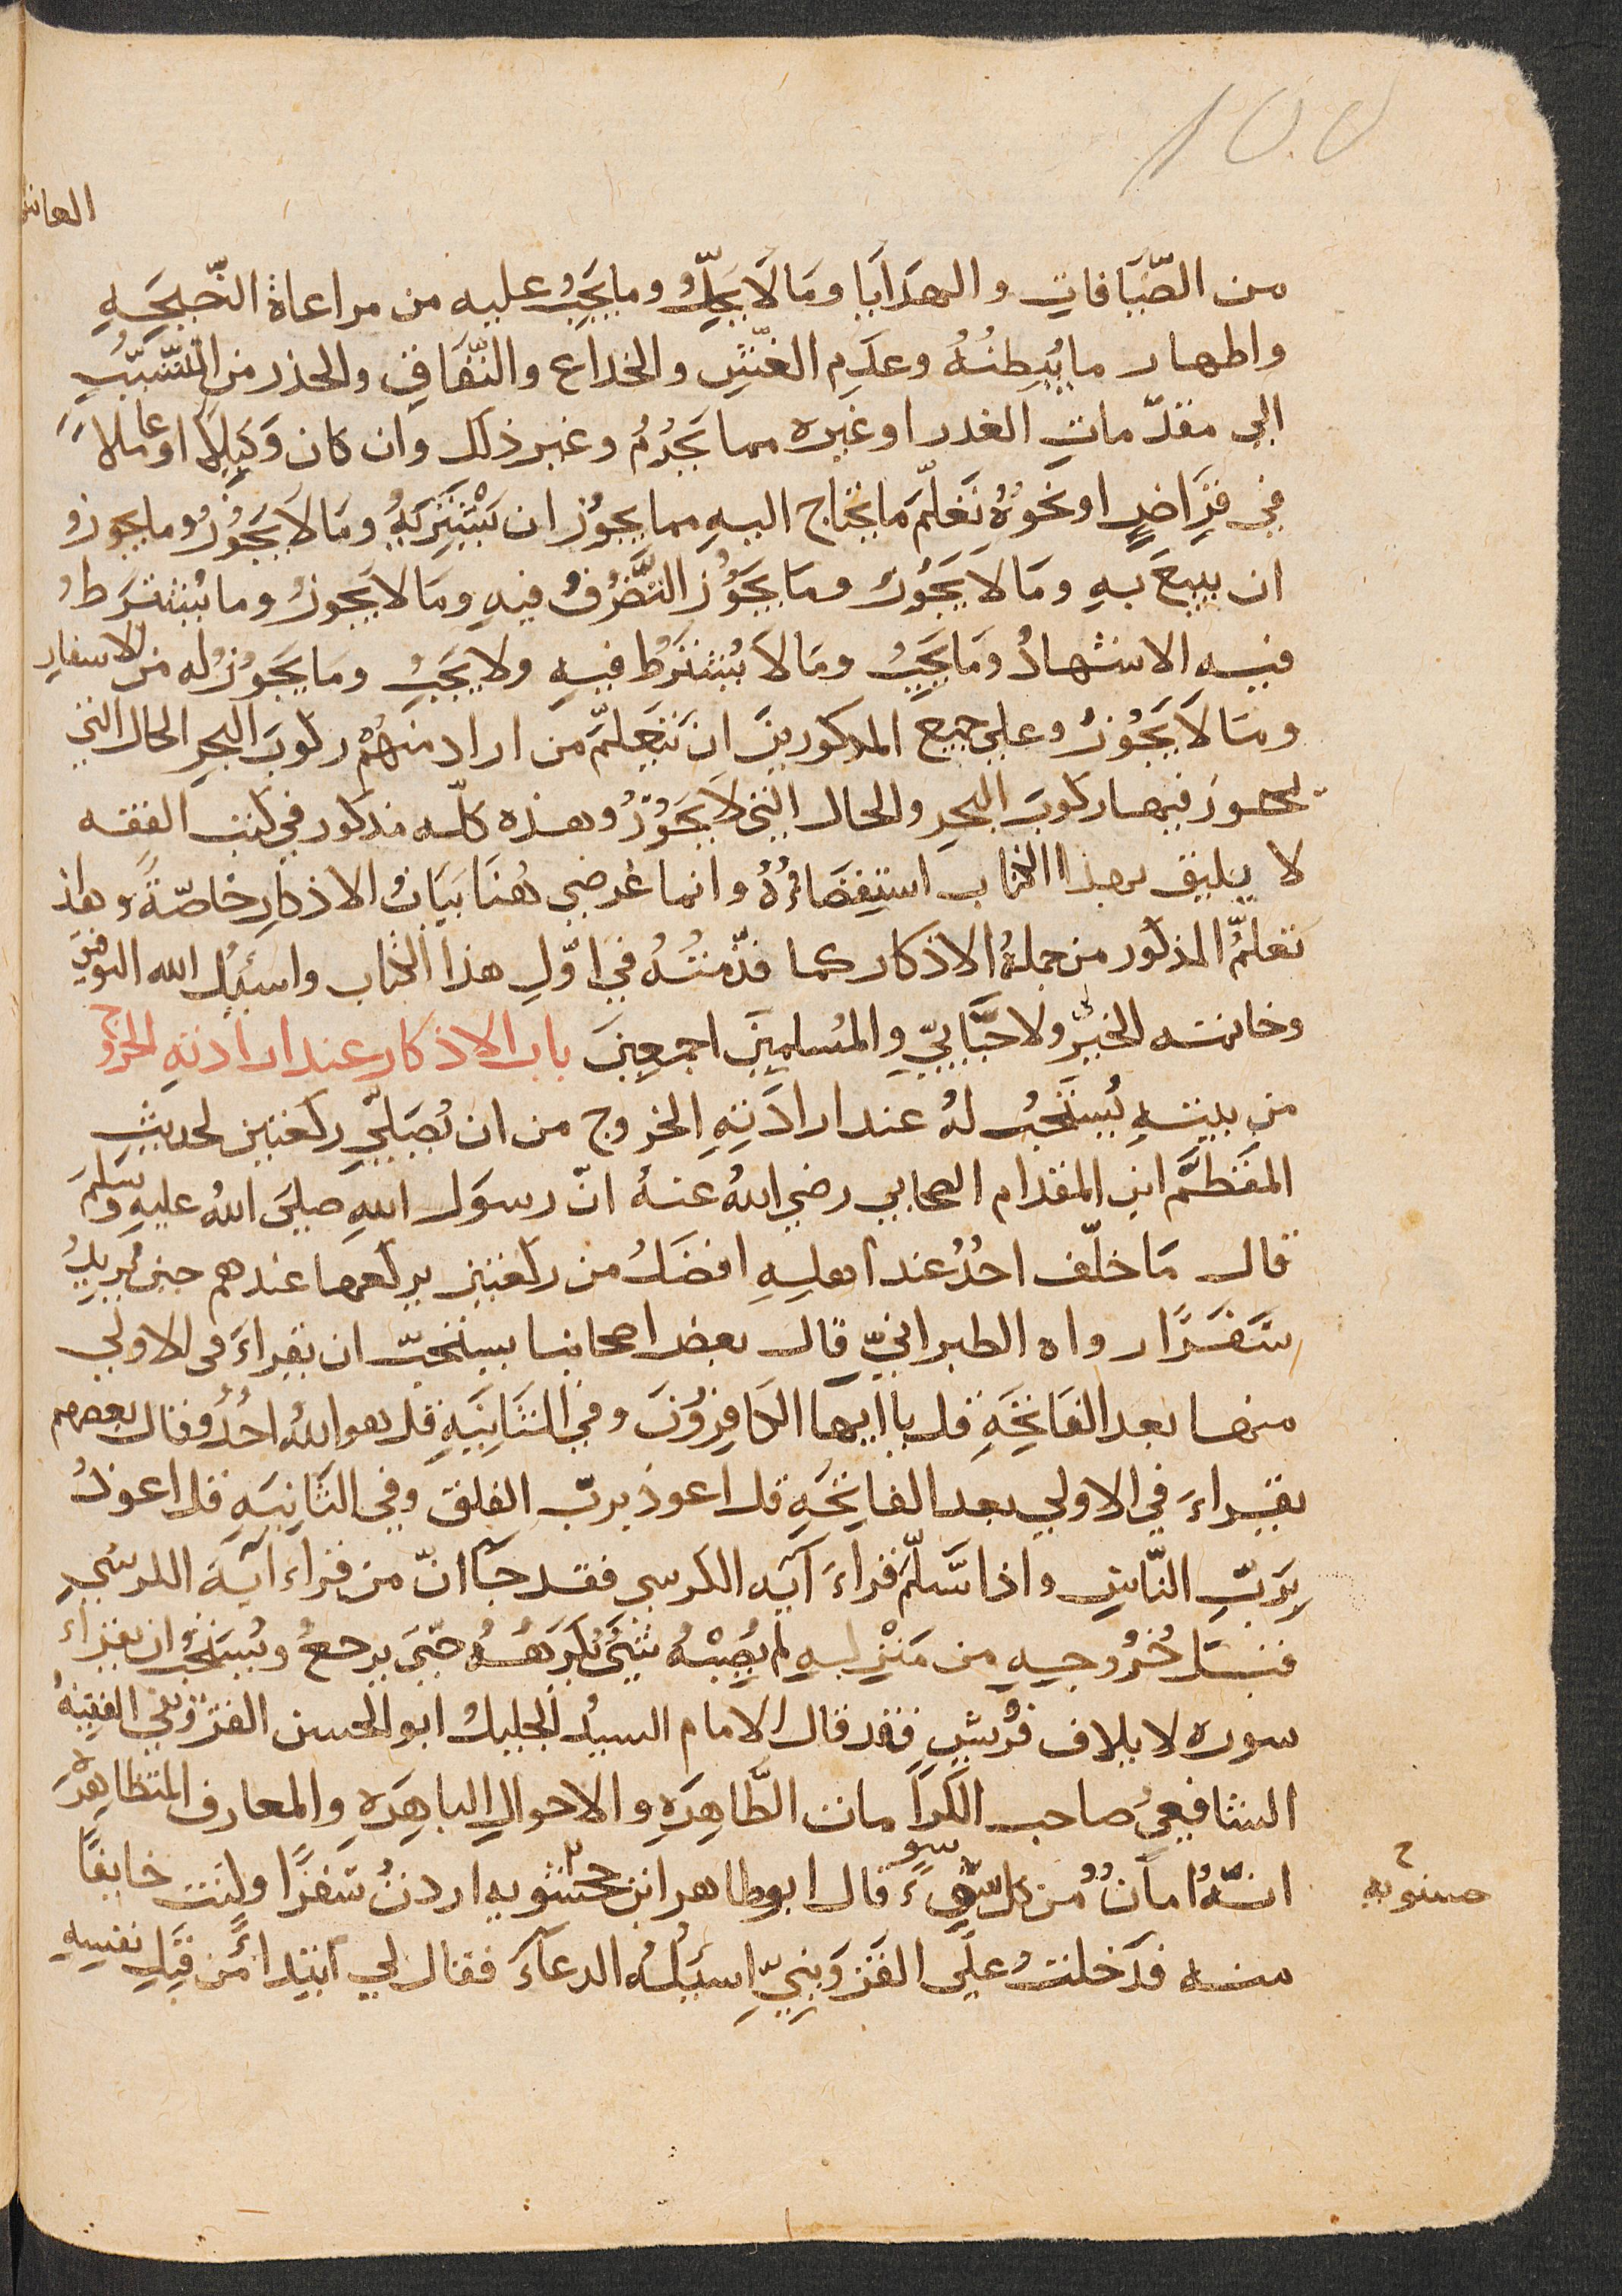 ١٥٥
العاش
من الضّيَافاتِ والهدَايَا ومَا لَا يَحِلُّ وما يَجِبُ عليه من مراعاة النّصِيحَهِ
واظهار ما يُبطِنُهُ وعدَمِ الغِشِّ والخداع والنّفَاقِ والحذر من التّسَبّبِ
الى مقدّماتِ الغدر او غيره مما يَحْرُمُ وغير ذلك وان كان وَكيلًا او عاملًا
في قِرَاضٍ او نحوُهُ تَعَلّمَ ما يحتاج اليهِ مما يجوُز ان يَشْتَرِيَهُ ومَا لا يَجُوزُ وما يجوزُ
ان يبيعَ بهِ ومَا لا يَجُوُز ومَا يَجُوُز التَّصَرُّفُ فيهِ ومَا لا يَجُوزُ وما يُشْتَرَطُ
فيهِ الاشهادُ ومَا يَجِبُ ومَا لَا يُشْتَرَطُ فيهِ ولا يَجِبُ ومَا يَجُوزُ له من الاسفارِ
ومَا لَا يَجُوزُ وعلى جميع المذكورينَ ان يَتَعَلّمَ من اراد منهُمْ ركوبَ البحرِ الحال التي
يجوز فيها ركوبَ البحرِ والحال التي لا يَجُوُزُ وهذه كلّه مذكور في كتب الفقه
لا يليق بهذا الكتاب استِقصَاءُهُ وانما غرضي هُنَا بَيَانُ الاذكارِ خاصّةً وهاذ
تعلمُّ المذكور من جملةُ الاذكار كما قدّمتُهُ في اوّلِ هذا الكتاب واسئلُ الله التوفيق
وخاتمه الخيرِّ ولاحبّابِيّ والمُسلمِينَ اجمعِينَ باب الاذكار عند ارادتهِ الخروج
من بيتهِ يُستَحَبُ لهُ عند ارادَتِهِ الخروج من ان يُصَلّيِ ركعتين لحديثِ
المَقطَّمِ ابن المقدام الصحابي رضي اللهُ عنهُ انّ رسوَل اللهِ صلىَ اللهُ عليهِ وسَلمَ
قال مَا خلّف احدُُ عند اهلِهِ افضَلُ من ركعتين يركعهما عندهم حين يُريدُ
سَفرًا رواه الطبرانيِّ قال بعض اصحابنا يستحبّ ان يقراءَ في الاولي
منهما بعد الفاتحَةِ قل يا ايها الكافِرُونَ وفي الثَّانِيَهِ قل هو اللهُ احدُُ وقال بعضهم
يقراءَ في الاولي بعد الفاتحَهِ قل اعوذ بربّ الفلق وفي الثَانِيَهِ قل اعوذُ
بِرَبِّ النّاسِ واذا سَلّمَ قراءَ آيه الكرسي فقد جآ انّ من قراء آية الكرسي
قبْلَ خُرُوجِهِ من مَنْزِلِهِ لم يُصِبْهُ شَيُْ يُكرَهُهُ حتّىَ يرجعُ ويُستَحَبُ ان يقراء
سوره لايلاف قُرُيشٍ فقد قال الامام السيدُ الجليلُ ابو الحسن القزويني الفقيهُ
الشافعيُ صاحب الكرَامات الظّاهِرَهِ والاحوالِ الباهِرَهِ والمعارف المتظاهرهِ
انّهُ امانُُ من كل سُوءٍ قال ابو طاهر ابن حَشويه اردتُ سَفرًا وكنت خايفًا
منه فدَخلتُ علَى القَزوَينِيِّ اسئَلُهُ الدعآءَ فقال لي ابتِداءً من قبَلِ نفسِهِ
حسنويه